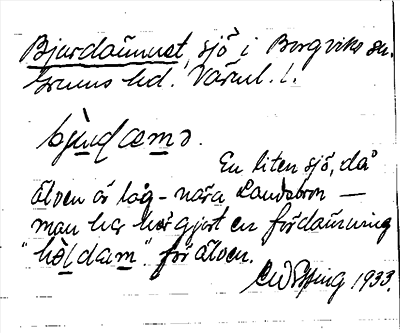 Bjurdammet, sjö i Borgviks sn.
Grums hd. Värml. l.
bju̱ḍæm̱ə.
En liten sjö, då
älven är låg - nära Landsbron —
man har här gjort en fördämning
"höldam" för älven.
1933.